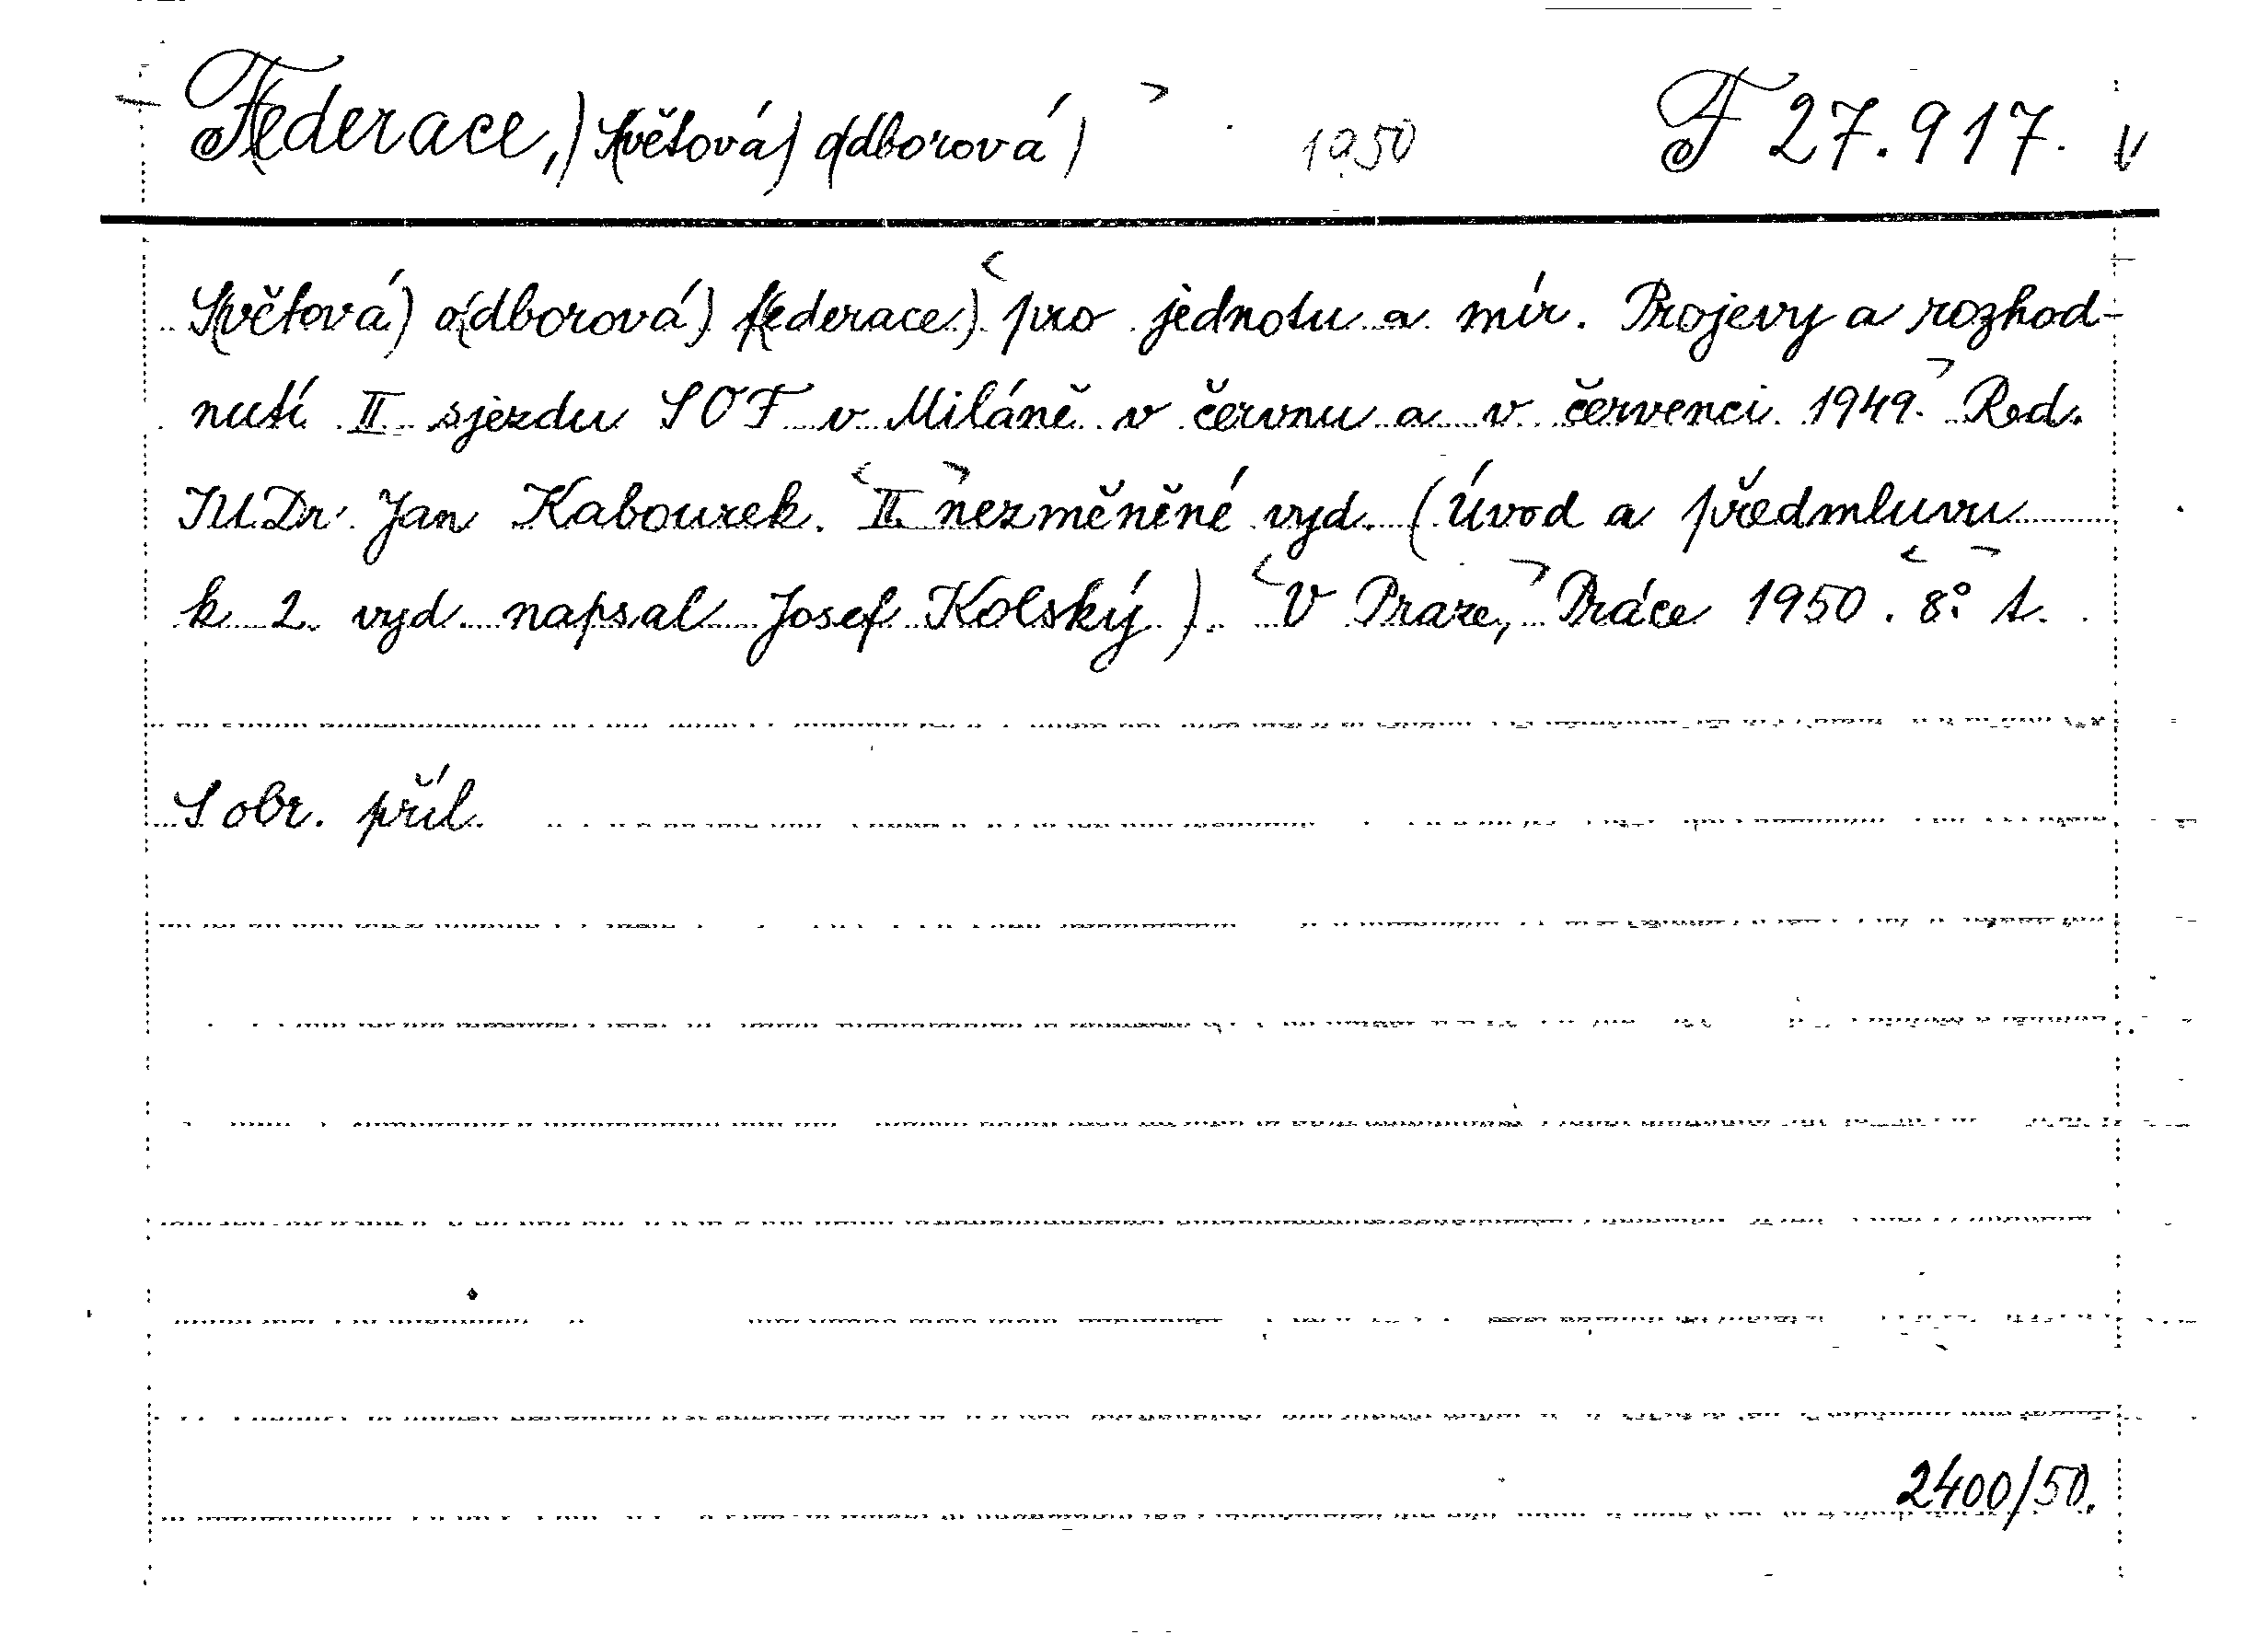 Federace, Světová odborová 1950 F 27.917. V
Světová odborová federace pro jednotu a mír. Projevy a rozhod-
nutí II. sjezdu SOF v Miláně v červnu a v červenci 1949. Red.
JUDr. Jan Kabourek. II. nezměněné vyd. (Úvod a předmluvu
k 2. vyd. napsal Josef Kolský). V Praze, Práce 1950. 8° A.
S obr. příl.
2400/50.